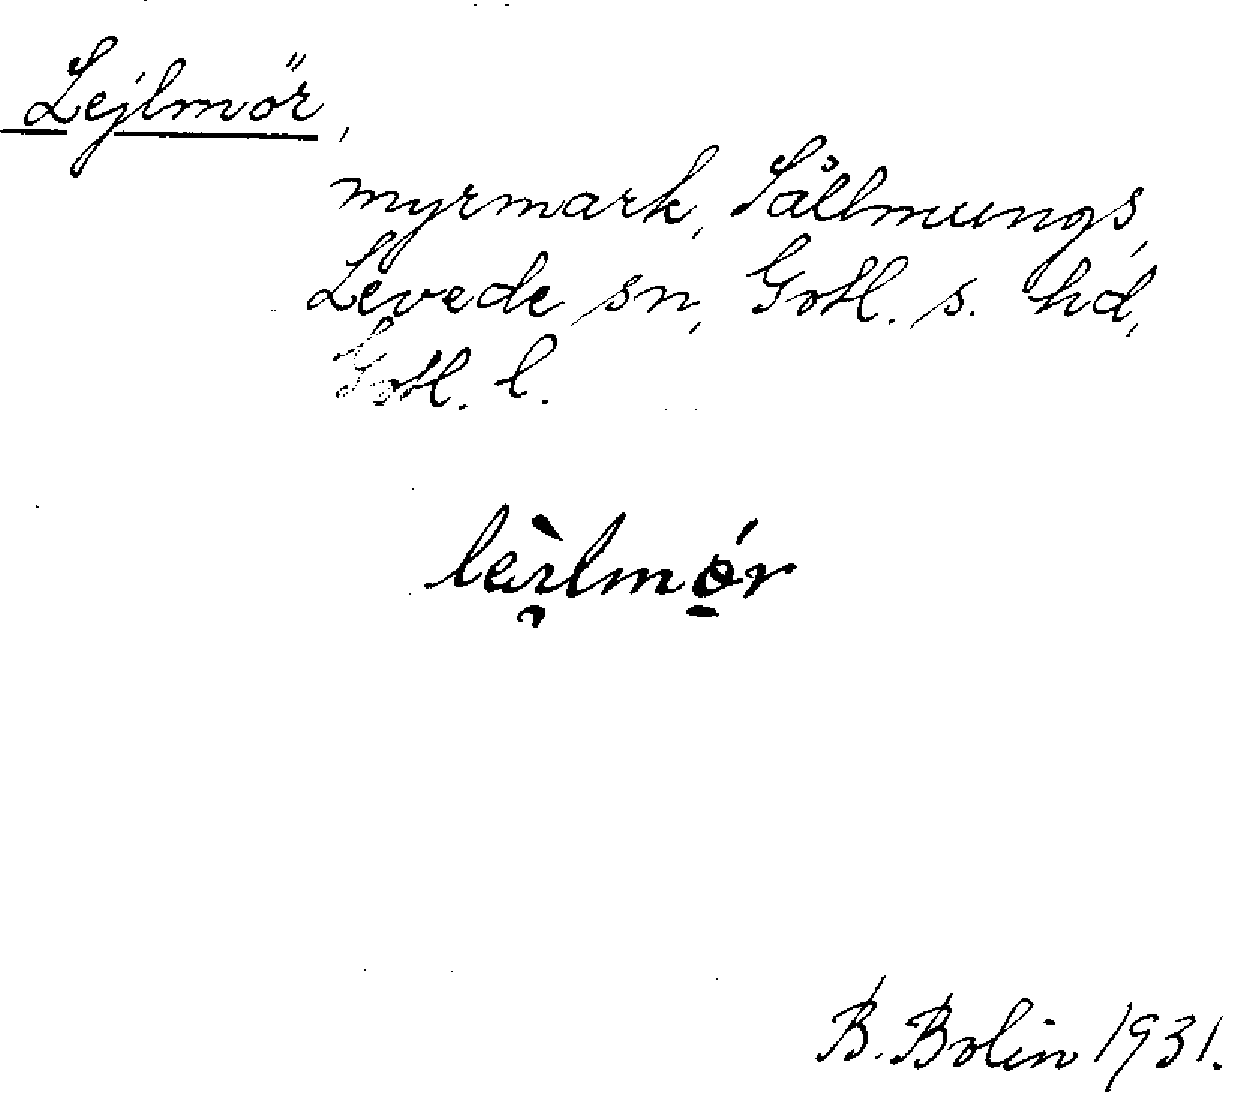 Lejlmör,
myrmark, Sällmungs,
Levede sn, Gotl. s. hd,
Gotl. l.
B. Bolin 1931.